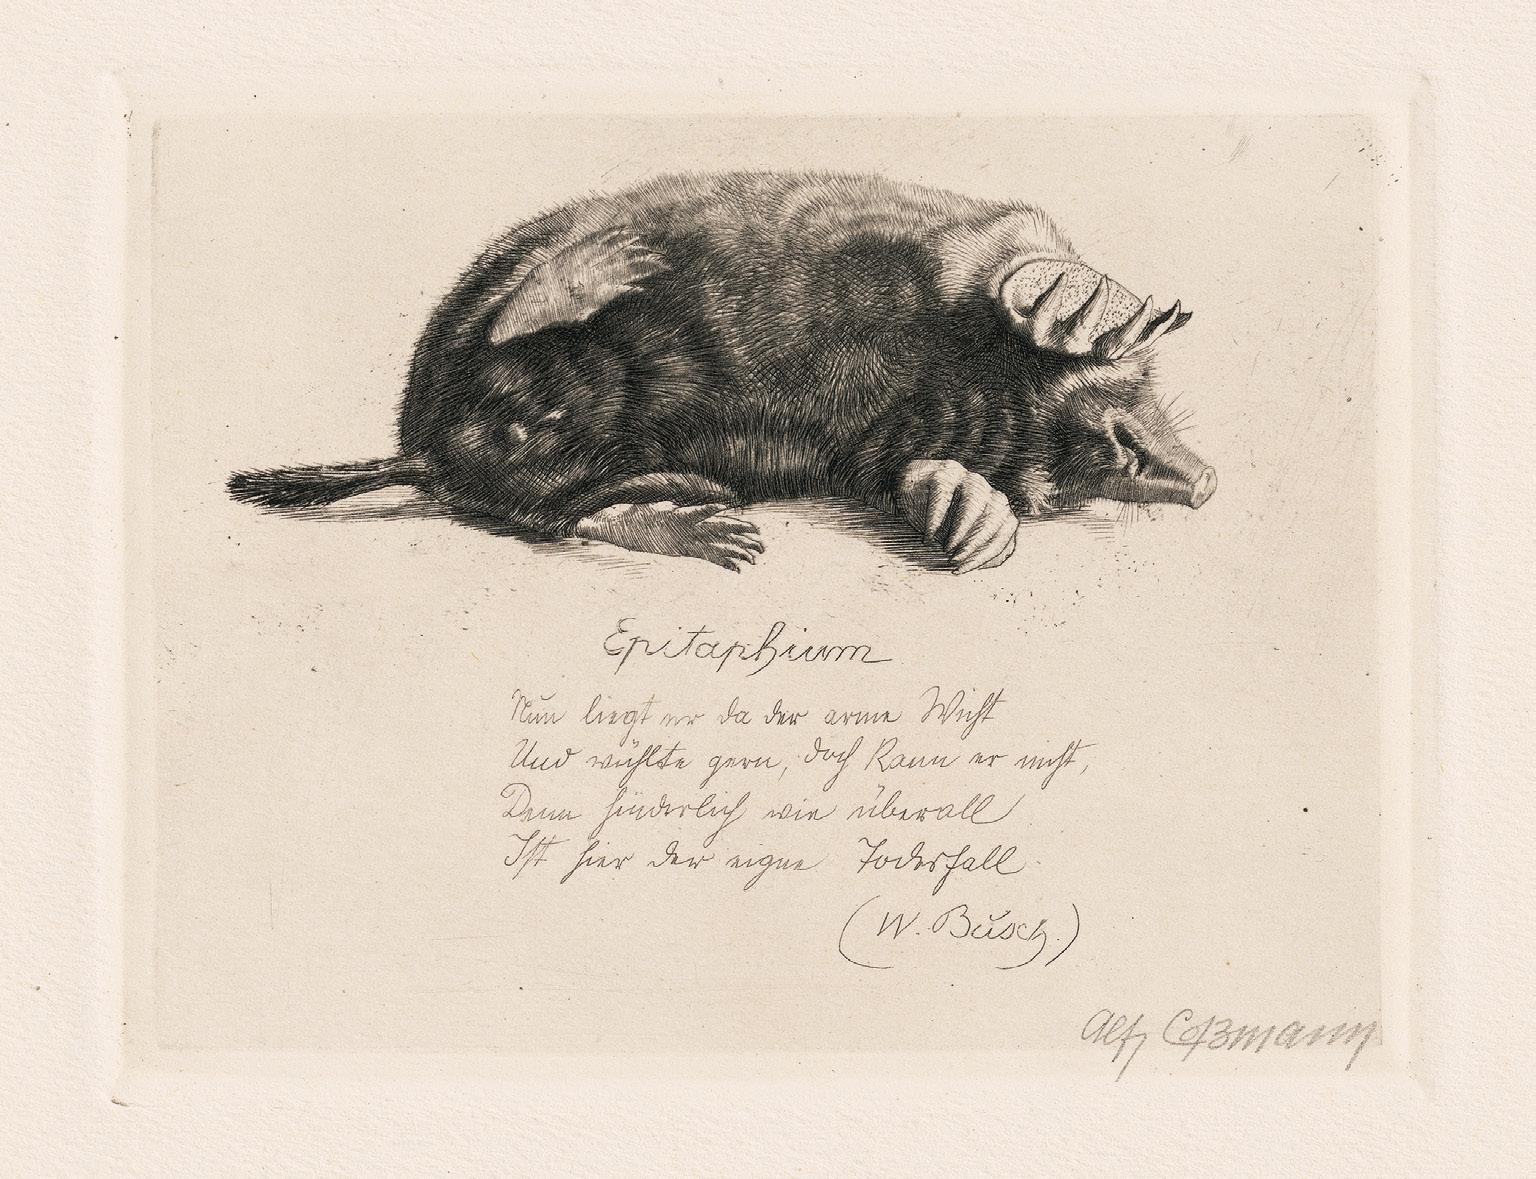 Epitaphium
Nun liegt er da der arme Wicht
Und wühlte gern, doch kann er nicht,
Denn hinderlich wie überall
Ist hier der eigne Todesfall
(W. Busch.)
Alf Coßmann